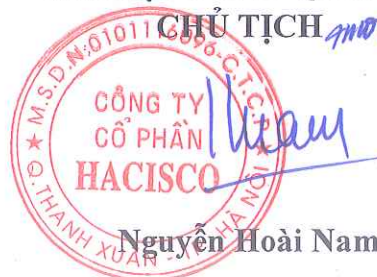 CHỦ TỊCH
M.S.D.N:0101116096-C.T.C.P
CÔNG TY
CỔ PHẦN
HACISCO
Q.THANH XUÂN - TP. HÀ NỘI
Nguyễn Hoài Nam